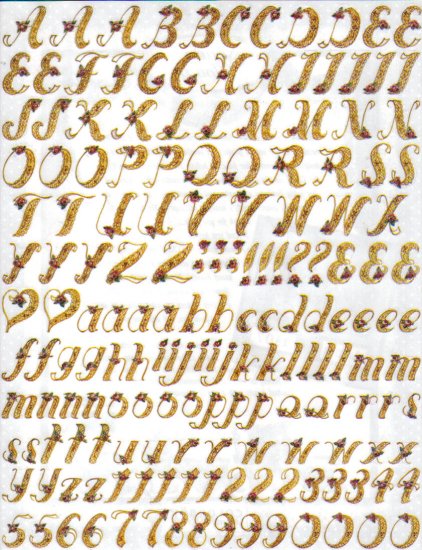 A A A A B B C C D D E E
E E F F G G H H I I I I I
J J K K L L M M N N
O O O P P Q Q R R S S
T T U U V V W W X
Y Y Y Z Z ; ; ; ! ! ! ? ? & & &
a a a b b c c d d e e e e
f f g g h h i i j j k k l l l m m
m m n n o o o p p p q a r r r s
s s t t u u r r v v w w x x
y y z z 1 1 1 1 1 1 2 2 2 3 3 4 4
5 5 6 6 7 7 8 8 9 9 9 0 0 0 0